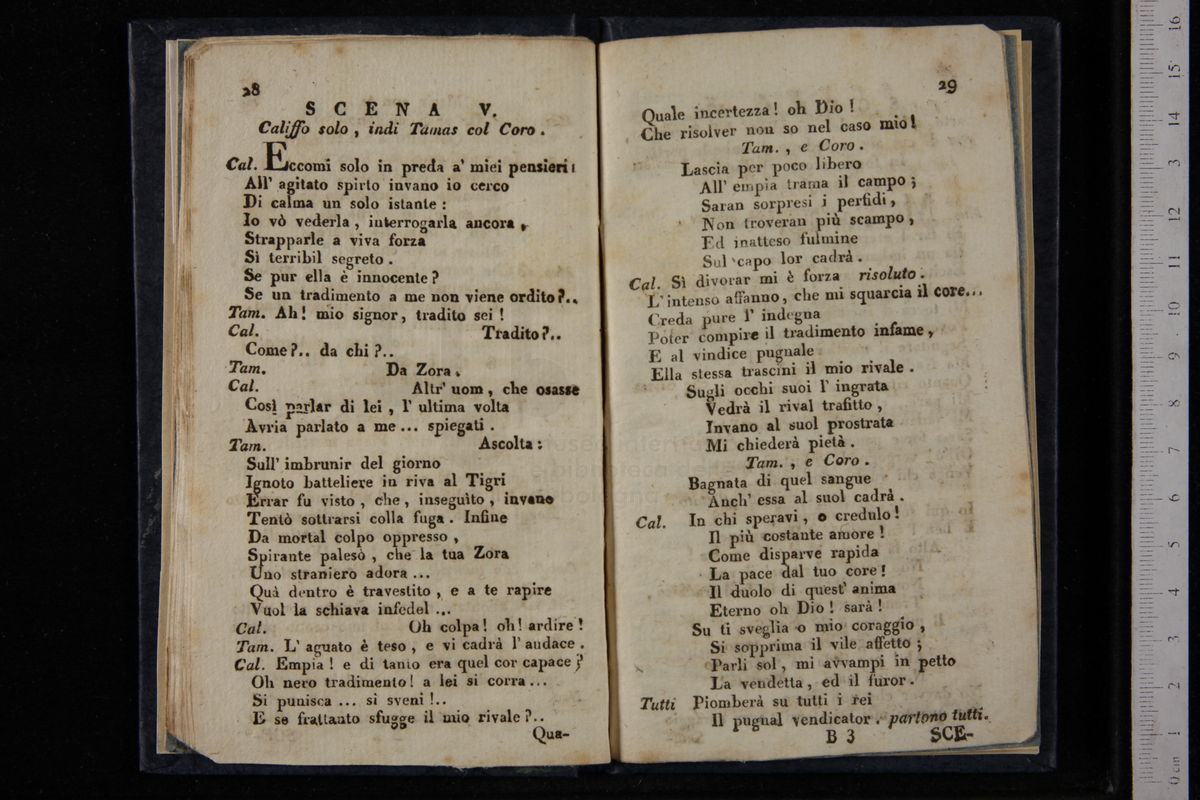 28
SCENA V.
Califfo solo, indi Tamas col Coro.
Cal. Eccomi solo in preda a' miei pensieri:
All' agitato spirto invano io cerco
Di calma un solo istante:
Io vò vederla, interrogarla ancora,
Strapparle a viva forza
Sì terribil segreto.
Se pur ella è innocente?
Se un tradimento a me non viene ordito?..
Tam. Ah! mio signor, tradito sei!
Cal. Tradito?..
Come?.. da chi?..
Tam. Da Zora.
Cal. Altr' uom, che osasse
Così parlar di lei, l' ultima volta
Avria parlato a me... spiegati.
Tam. Ascolta:
Sull' imbrunir del giorno
Ignoto batteliere in riva al Tigri
Errar fu visto, che, inseguito, invano
Tentò sottrarsi colla fuga. Infine
Da mortal colpo oppresso,
Spirante palesò, che la tua Zora
Uno straniero adora...
Quà dentro è travestito, e a te rapire
Vuol la schiava infedel...
Cal. Oh colpa! oh! ardire!
Tam. L' aguato è teso, e vi cadrà l' audace.
Cal. Empia! e di tanto era quel cor capace?
Oh nero tradimento! a lei si corra...
Si punisca... si sveni!..
E se frattanto sfugge il mio rivale?..
Qua-
29
Quale incertezza! oh Dio!
Che risolver non so nel caso mio!
Tam., e Coro.
Lascia per poco libero
All' empia trama il campo;
Saran sorpresi i perfidi,
Non troveran più scampo,
Ed inatteso fulmine
Sul capo lor cadrà.
Cal. Sì divorar mi è forza risoluto.
L' intenso affanno, che mi squarcia il core...
Creda pure l' indegna
Poter compire il tradimento infame,
E al vindice pugnale
Ella stessa trascini il mio rivale.
Sugli occhi suoi l' ingrata
Vedrà il rival trafitto,
Invano al suol prostrata
Mi chiederà pietà.
Tam., e Coro.
Bagnata di quel sangue
Anch' essa al suol cadrà.
Cal. In chi speravi, o credulo!
Il più costante amore!
Come disparve rapida
La pace dal tuo core!
Il duolo di quest' anima
Eterno oh Dio! sarà!
Su ti sveglia o mio coraggio,
Si sopprima il vile affetto;
Parli sol, mi avvampi in petto
La vendetta, ed il furor.
Tutti Piomberà su tutti i rei
Il pugnal vendicator. partono tutti.
B 3 SCE-